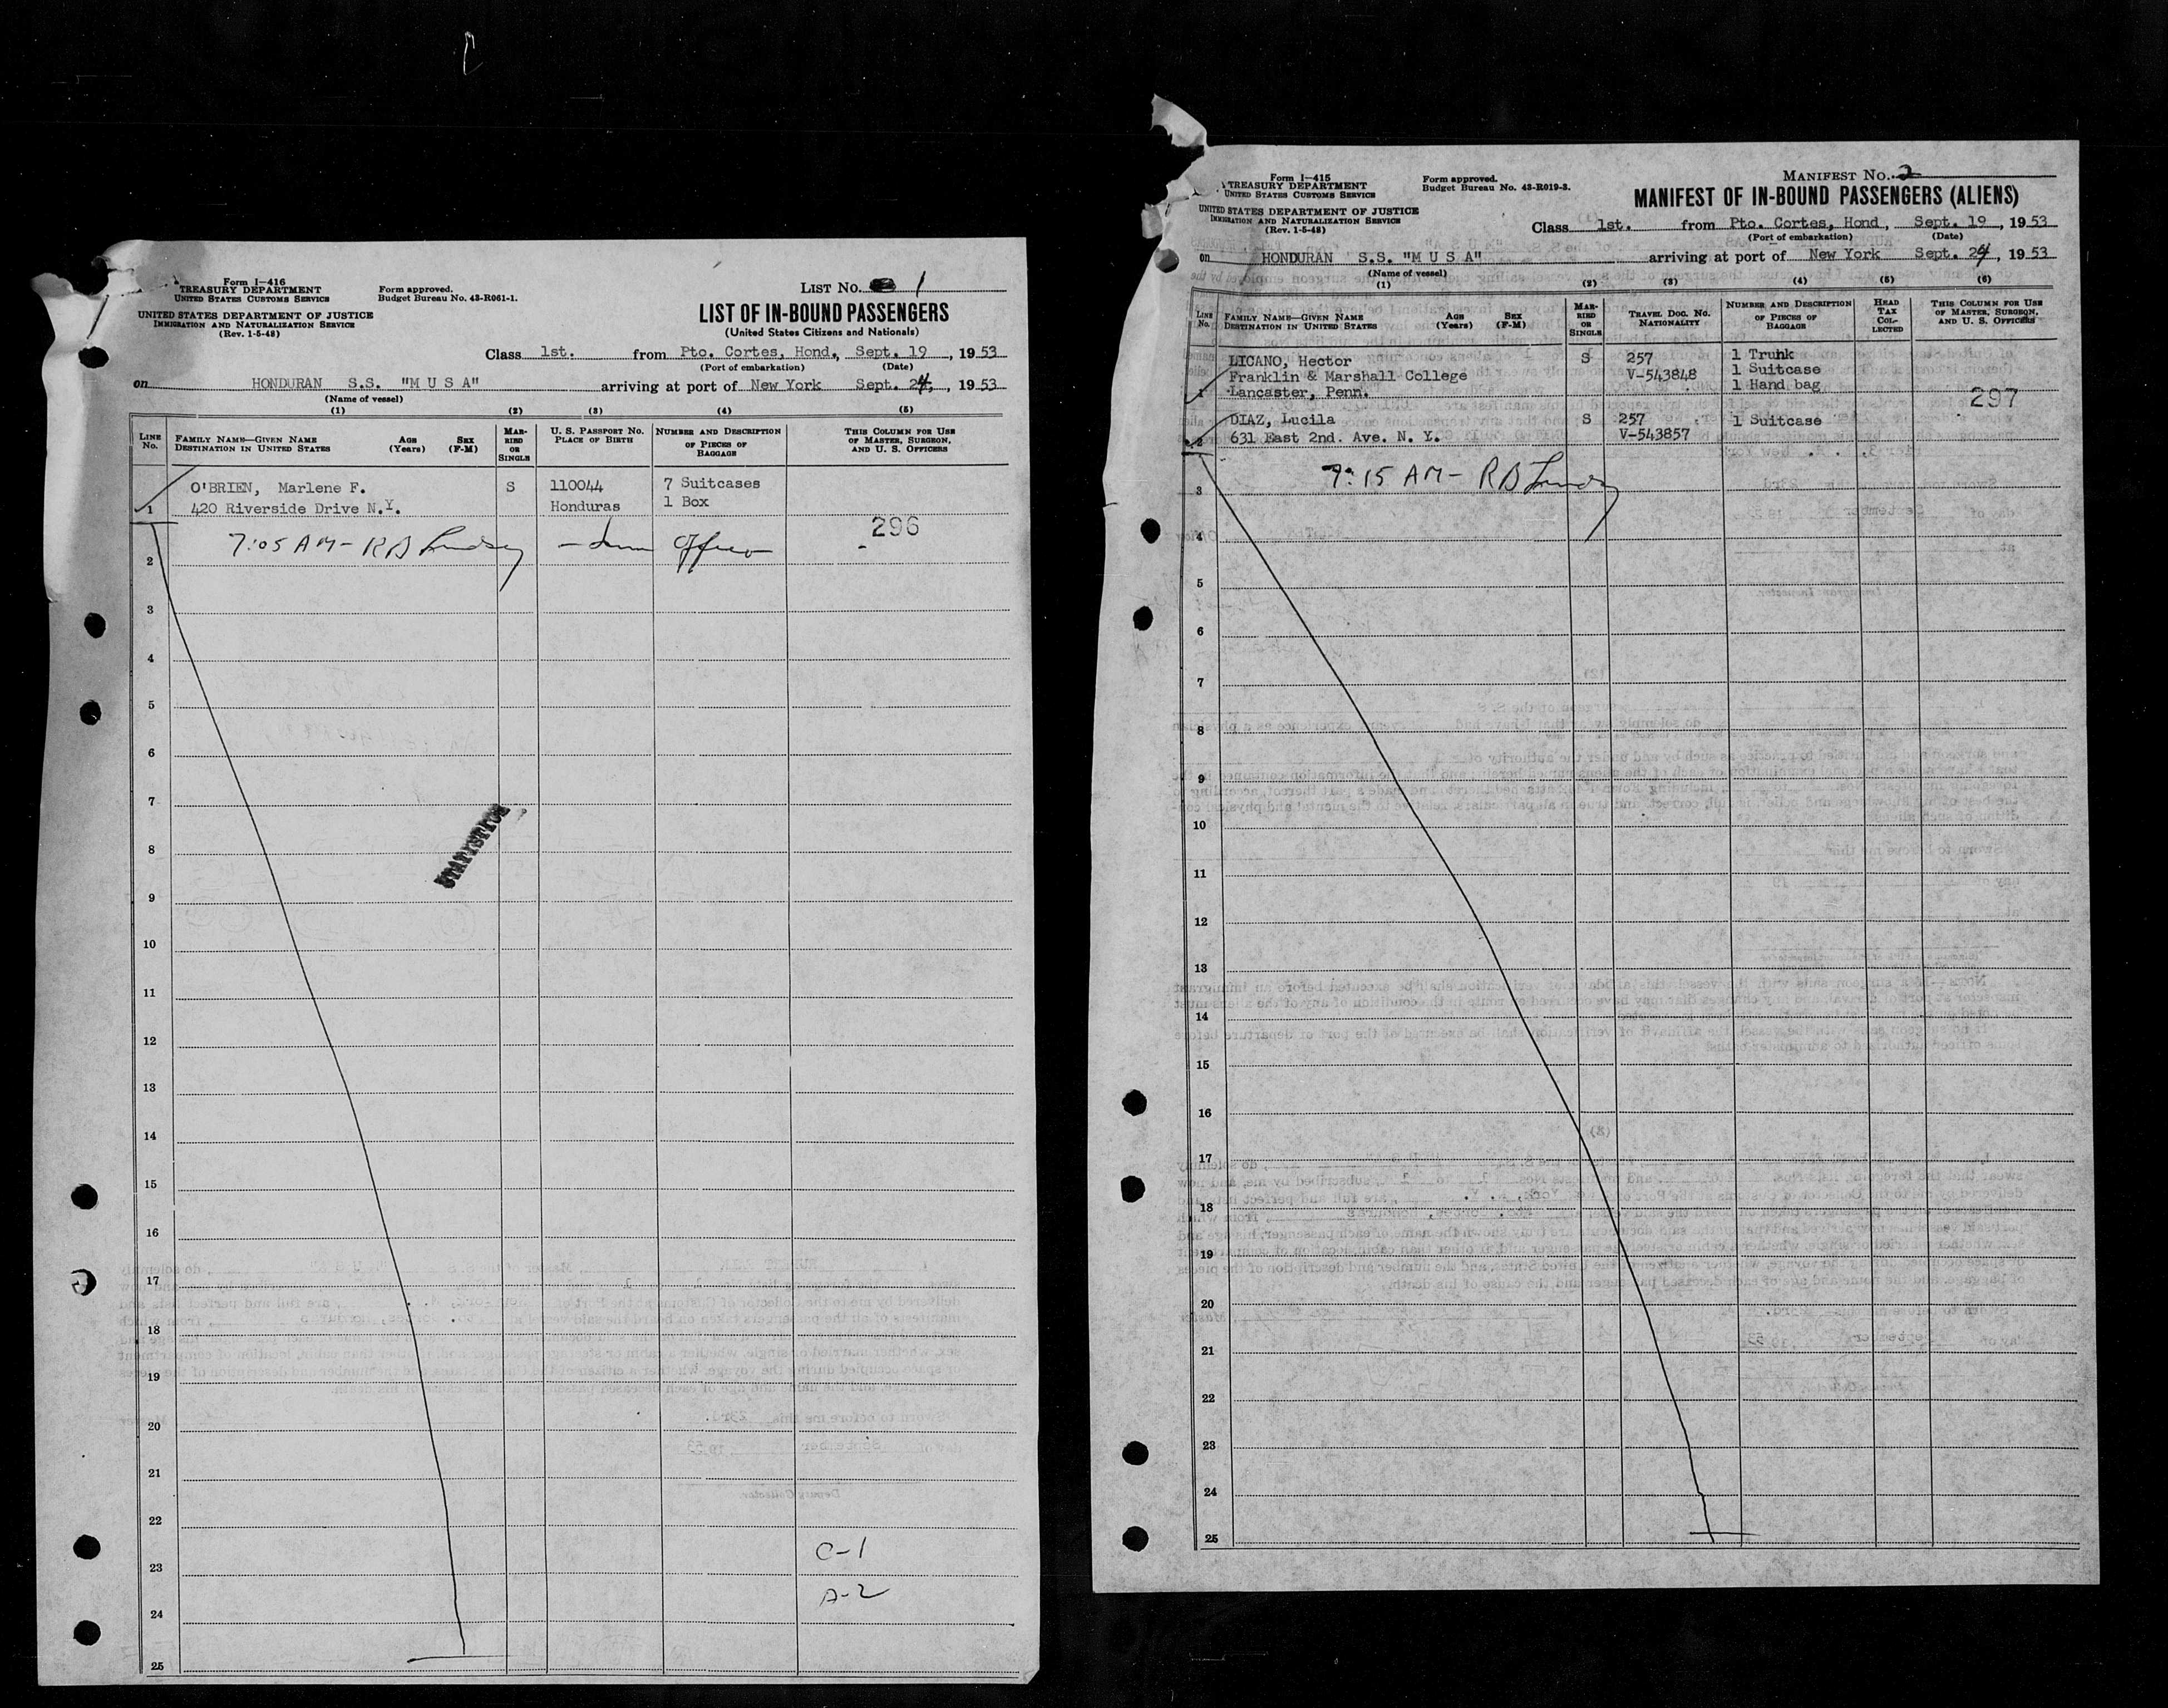 Form I-416
TREASURY DEPARTMENT
UNITED STATES CUSTOMS SERVICE
Form approved.
Budget Bureau No. 43-R061-1.
UNITED STATES DEPARTMENT OF JUSTICE
IMMIGRATION AND NATURALIZATION SERVICE
(Rev. 1-5-48)
LIST NO. 1
LIST OF IN-BOUND PASSENGERS
(United States Citizens and Nationals)
Class 1st. from Pto. Cortes, Hond., Sept. 19, 1953
(Port of embarkation) (Date)
on HONDURAN S.S. "M U S A" arriving at port of New York Sept. 24, 1953
(Name of vessel)
(1) (2) (3) (4) (5)
LINE No. FAMILY NAME—GIVEN NAME DESTINATION IN UNITED STATES AGE (Years) SEX (F-M) MARRIED OR SINGLE U. S. PASSPORT NO. PLACE OF BIRTH NUMBER AND DESCRIPTION OF PIECES OF BAGGAGE THIS COLUMN FOR USE OF MASTER, SURGEON, AND U. S. OFFICERS
O'BRIEN, Marlene F. S 110044 7 Suitcases
1 420 Riverside Drive N.Y. Honduras 1 Box
296
7:05 AM - R B Lindsey - Imm Officer
2
3
4
5
6
7
8
STATISTICS
9
10
11
12
13
14
15
16
17
18
19
20
21
22
C-1
23
A-2
24
25
Form I-415
TREASURY DEPARTMENT
UNITED STATES CUSTOMS SERVICE
Form approved.
Budget Bureau No. 43-R019-3.
UNITED STATES DEPARTMENT OF JUSTICE
IMMIGRATION AND NATURALIZATION SERVICE
(Rev. 1-5-48)
MANIFEST NO. 2
MANIFEST OF IN-BOUND PASSENGERS (ALIENS)
Class 1st. from Pto. Cortes, Hond, Sept. 19, 1953
(Port of embarkation) (Date)
on HONDURAN S.S. "M U S A" arriving at port of New York Sept. 24, 1953
(Name of vessel)
(1) (2) (3) (4) (5) (6)
LINE No. FAMILY NAME—GIVEN NAME DESTINATION IN UNITED STATES AGE (Years) SEX (F-M) MARRIED OR SINGLE TRAVEL DOC. NO. NATIONALITY NUMBER AND DESCRIPTION OF PIECES OF BAGGAGE HEAD TAX COLLECTED THIS COLUMN FOR USE OF MASTER, SURGEON, AND U. S. OFFICERS
LICANO, Hector S 257 1 Trunk
Franklin & Marshall College V-543848 1 Suitcase
1 Lancaster, Penn. 1 Hand bag
297
DIAZ, Lucila S 257 1 Suitcase
2 631 East 2nd. Ave. N. Y. V-543857
7:15 AM - R B Lindsey
3
4
5
6
7
8
9
10
11
12
13
14
15
16
17
18
19
20
21
22
23
24
25